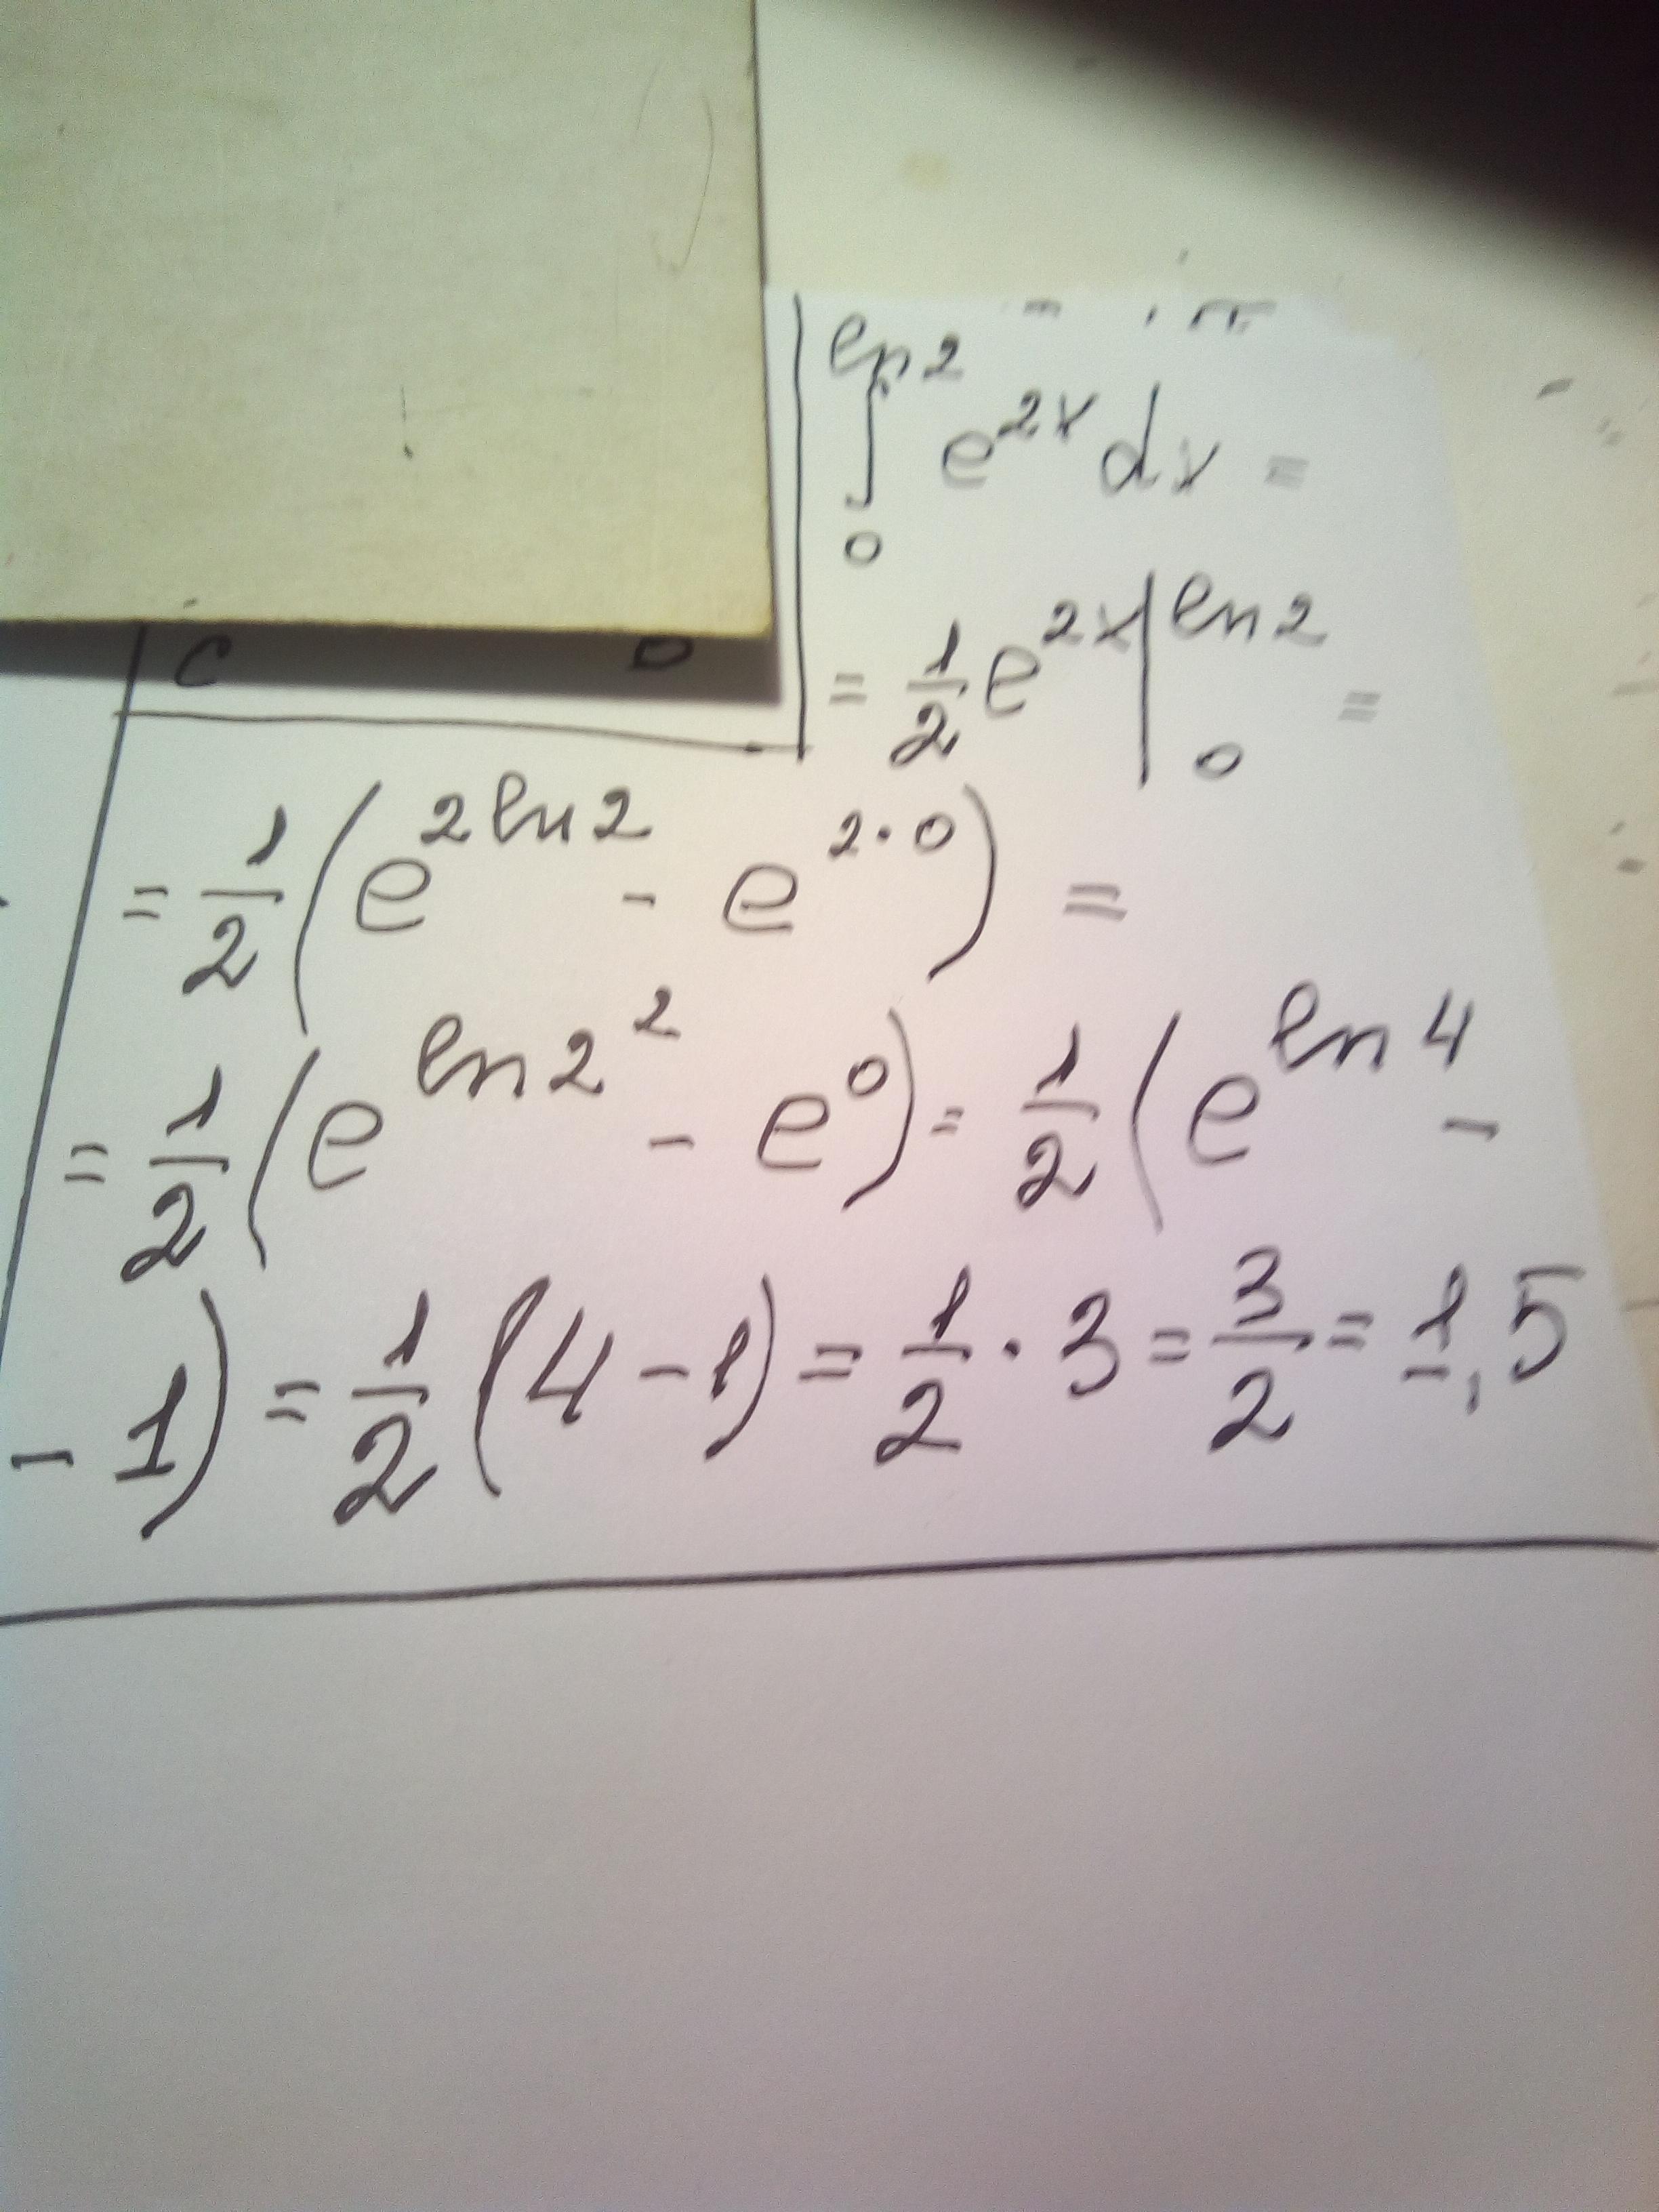 ∫₀^{ln2} e^{2x} dx =
= 1/2 e^{2x} |₀^{ln2} =
= 1/2 (e^{2ln2} - e^{2·0}) =
= 1/2 (e^{ln2²} - e⁰) = 1/2 (e^{ln4} -
- 1) = 1/2 (4 - 1) = 1/2 · 3 = 3/2 = 1,5